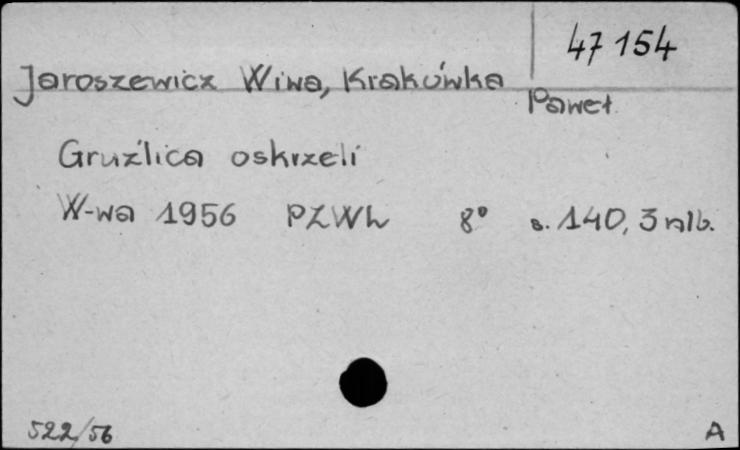 47 154
Jaroszewicz Wiwa, Krakówka
Paweł
Gruźlica oskrzeli
W-wa 1956 PZWL 8° s. 140, 3 nlb.
522/56
A